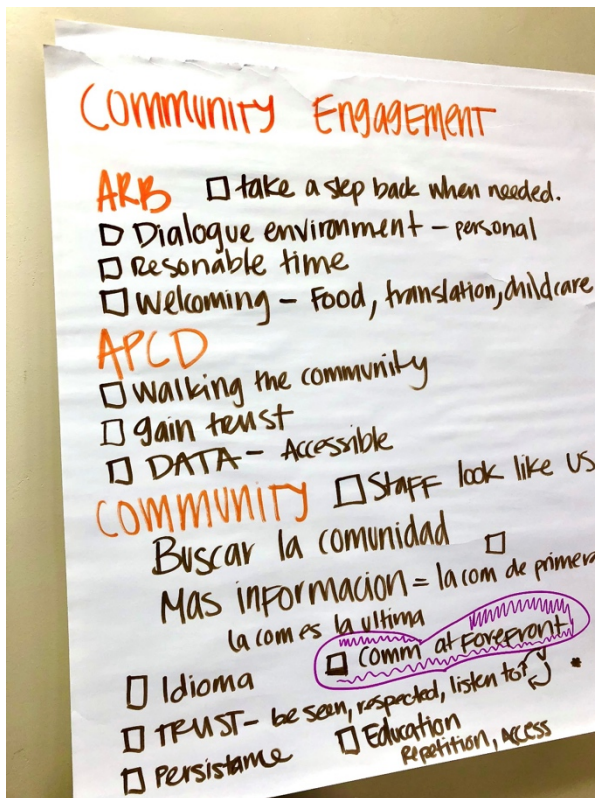 COMMUNITY ENGAGEMENT
ARB □ take a step back when needed.
□ Dialogue environment - personal
□ Resonable time
□ Welcoming - Food, translation, childcare
APCD
□ Walking the community
□ gain trust
□ DATA - Accessible
COMMUNITY □ Staff look like us
Buscar la comunidad □
Mas informacion = la com de primera
la com es la ultima
□ Comm at Forefront
□ Idioma
□ TRUST - be seen, respected, listen to
□ Persistance □ Education
Repetition, Access